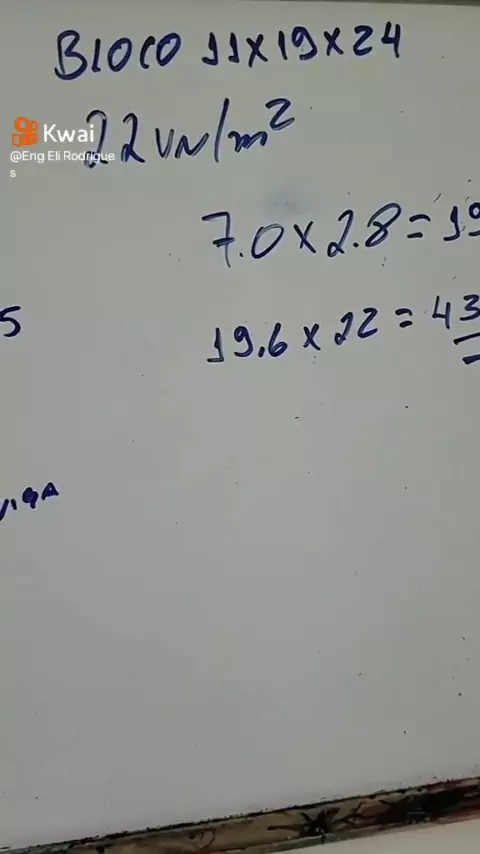 BLOCO 11x19x24
22 UN/m²
Kwai
@Eng Eli Rodrigues
7.0 x 2.8 = 19
5
19.6 x 22 = 43
VIGA